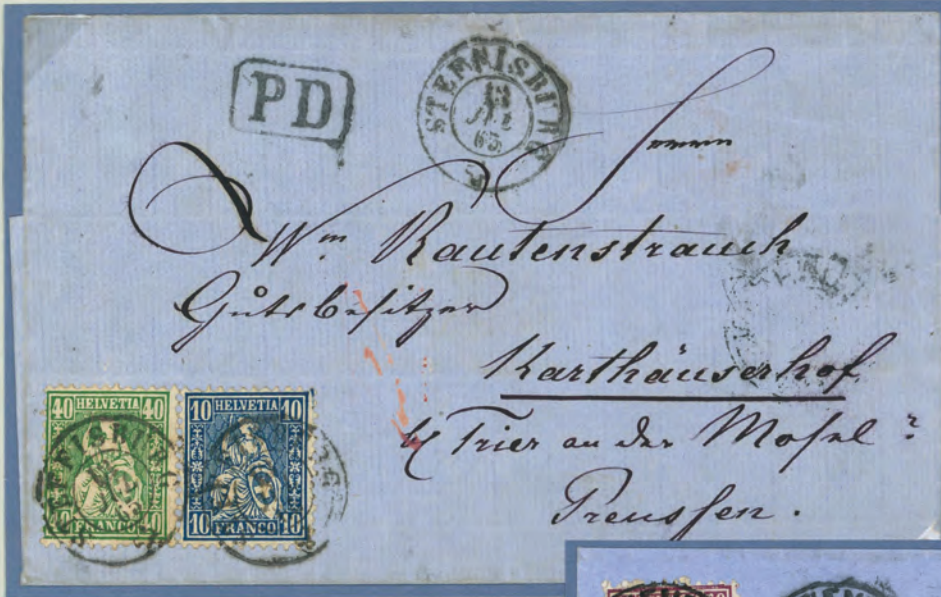 PD
STEFFISBURG
13
65
Herrn
Wm Rautenstrauch
Gutsbesitzer
Karthäuserhof
b/ Trier an der Mosel
Preussen.
40 HELVETIA 40
40 FRANCO 40
10 HELVETIA 10
10 FRANCO 10